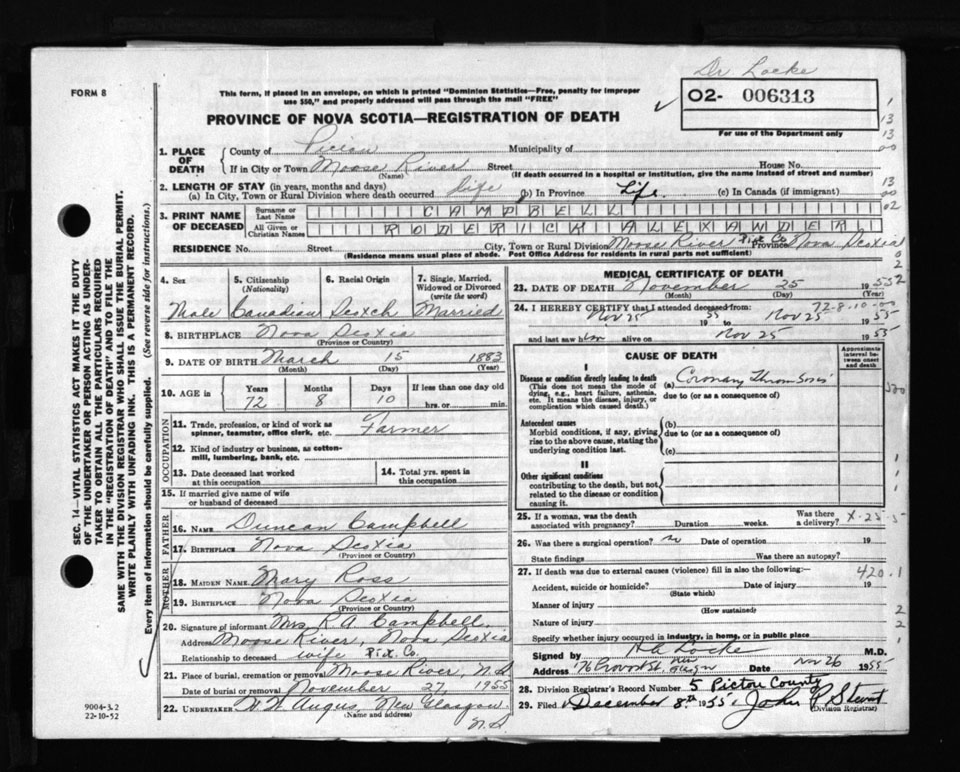 Dr Locke
FORM 8
This form, if placed in an envelope, on which is printed "Dominion Statistics—Free, penalty for improper
use $50," and properly addressed will pass through the mail "FREE"
O2- 006313
For use of the Department only
PROVINCE OF NOVA SCOTIA—REGISTRATION OF DEATH
1. PLACE OF DEATH
County of Pictou Municipality of
If in City or Town Moose River Street House No.
(Name) (If death occurred in a hospital or institution, give the name instead of street and number)
2. LENGTH OF STAY (in years, months and days)
(a) In City, Town or Rural Division where death occurred Life (b) In Province Life (c) In Canada (if immigrant)
3. PRINT NAME OF DECEASED
Surname or Last Name CAMPBELL
All Given or Christian Names RODERICK ALEXANDER
RESIDENCE No. Street City, Town or Rural Division Moose River Pict Co Province Nova Scotia
(Residence means usual place of abode. Post Office Address for residents in rural parts not sufficient)
4. Sex 5. Citizenship (Nationality) 6. Racial Origin 7. Single, Married, Widowed or Divorced (write the word)
Male Canadian Scotch Married
8. BIRTHPLACE Nova Scotia
(Province or Country)
9. DATE OF BIRTH March 15 1883
(Month) (Day) (Year)
10. AGE in Years Months Days If less than one day old
72 8 10 hrs. or min.
OCCUPATION
11. Trade, profession, or kind of work as spinner, teamster, office clerk, etc. Farmer
12. Kind of industry or business, as cotton-mill, lumbering, bank, etc.
13. Date deceased last worked at this occupation
14. Total yrs. spent in this occupation
15. If married give name of wife or husband of deceased
FATHER
16. NAME Duncan Campbell
17. BIRTHPLACE Nova Scotia
(Province or Country)
MOTHER
18. MAIDEN NAME Mary Ross
19. BIRTHPLACE Nova Scotia
(Province or Country)
20. Signature of informant Mrs. R.A. Campbell
Address Moose River, Nova Scotia
Relationship to deceased wife Pict. Co.
21. Place of burial, cremation or removal Moose River, N.S
Date of burial or removal November 27, 1955
22. UNDERTAKER Angus, New Glasgow
(Name and address) N.S
MEDICAL CERTIFICATE OF DEATH
23. DATE OF DEATH November 25 1955
(Month) (Day) (Year)
72-8-10-00
24. I HEREBY CERTIFY that I attended deceased from:
Nov 25 1955 to Nov 25 1955
and last saw him alive on Nov 25 1955
CAUSE OF DEATH
Approximate interval between onset and death
I
Disease or condition directly leading to death
(This does not mean the mode of dying, e.g., heart failure, asthenia, etc. It means the disease, injury, or complication which caused death.)
(a) Coronary Thrombosis
due to (or as a consequence of)
Antecedent causes
Morbid conditions, if any, giving rise to the above cause, stating the underlying condition last.
(b)
due to (or as a consequence of)
(c)
II
Other significant conditions
contributing to the death, but not related to the disease or condition causing it.
25. If a woman, was the death associated with pregnancy? Duration weeks. Was there a delivery?
26. Was there a surgical operation? no Date of operation 19
State findings Was there an autopsy?
27. If death was due to external causes (violence) fill in also the following:—
420.1
Accident, suicide or homicide? Date of injury 19
(State which)
Manner of injury
(How sustained)
Nature of injury
Specify whether injury occurred in industry, in home, or in public place
Signed by Locke M.D.
Address 76 Provost St. New Date Nov 26 1955
28. Division Registrar's Record Number 5 Pictou County
29. Filed December 8th 1955 John Stewart
(Division Registrar)
SEC. 14—VITAL STATISTICS ACT MAKES IT THE DUTY
OF THE UNDERTAKER OR PERSON ACTING AS UNDER-
TAKER TO OBTAIN ALL THE PARTICULARS REQUIRED
IN THE "REGISTRATION OF DEATH" AND TO FILE THE
SAME WITH THE DIVISION REGISTRAR WHO SHALL ISSUE THE BURIAL PERMIT.
WRITE PLAINLY WITH UNFADING INK. THIS IS A PERMANENT RECORD.
Every item of information should be carefully supplied. (See reverse side for instructions.)
9004-3.2
22-10-52